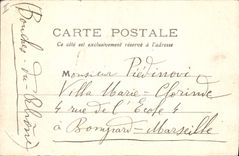 CARTE POSTALE
Ce côté est exclusivement réservé à l'adresse
Monsieur Piédinovi
Villa Marie-Clorinde
4 rue de l'Ecole 4
à Bompard-Marseille
Bouches-du-Rhône